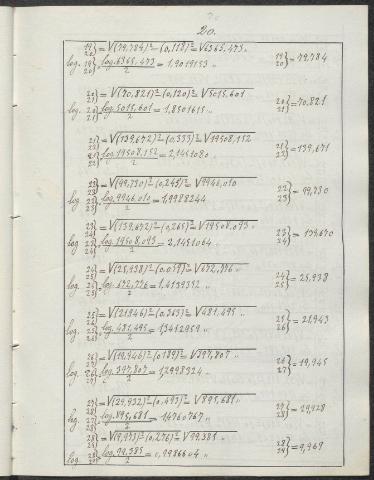 20.
19/20} = √(79,784)² - (0,118)² = √6365,473 „
log. 19/20} log. 6365,473/2 = 1,9019153 „ 19/20} = 79,784
20/21} = √(70,821)² - (0,120)² = √5015,601
log. 20/21} log. 5015,601/2 = 1,8501615 „ 20/21} = 70,821
21/22} = √(139,672)² - (0,333)² = √19508,152
log. 21/22} log. 19508,152/2 = 2,1451080 „ 21/22} = 139,671
22/23} = √(99,730)² - (0,245)² = √9946,010
log. 22/23} log. 9946,010/2 = 1,9988244 22/23} = 99,730
23/24} = √(139,672)² - (0,265)² = √19508,093 „
log. 23/24} log. 19508,093/2 = 2,1451064 „ 23/24} = 139,670
24/25} = √(25,938)² - (0,059)² = √672,776 „
log. 24/25} log. 672,776/2 = 1,4139352 „ 24/25} = 25,938
25/26} = √(21,946)² - (0,363)² = √481,495 „
log. 25/26} log. 481,495/2 = 1,3412959 „ 25/26} = 21,943
26/27} = √(19,946)² - (0,189)² = √397,807 „
log. 26/27} log. 397,807/2 = 1,2998324 „ 26/27} = 19,945
27/28} = √(29,932)² - (0,493)² = √895,681 „
log. 27/28} log. 895,681/2 = 1,4760767 „ 27/28} = 29,928
28/29} = √(9,973)² - (0,276)² = √99,381 „
log. 28/29} log. 99,385/2 = 0,9986604 „ 28/29} = 9,969